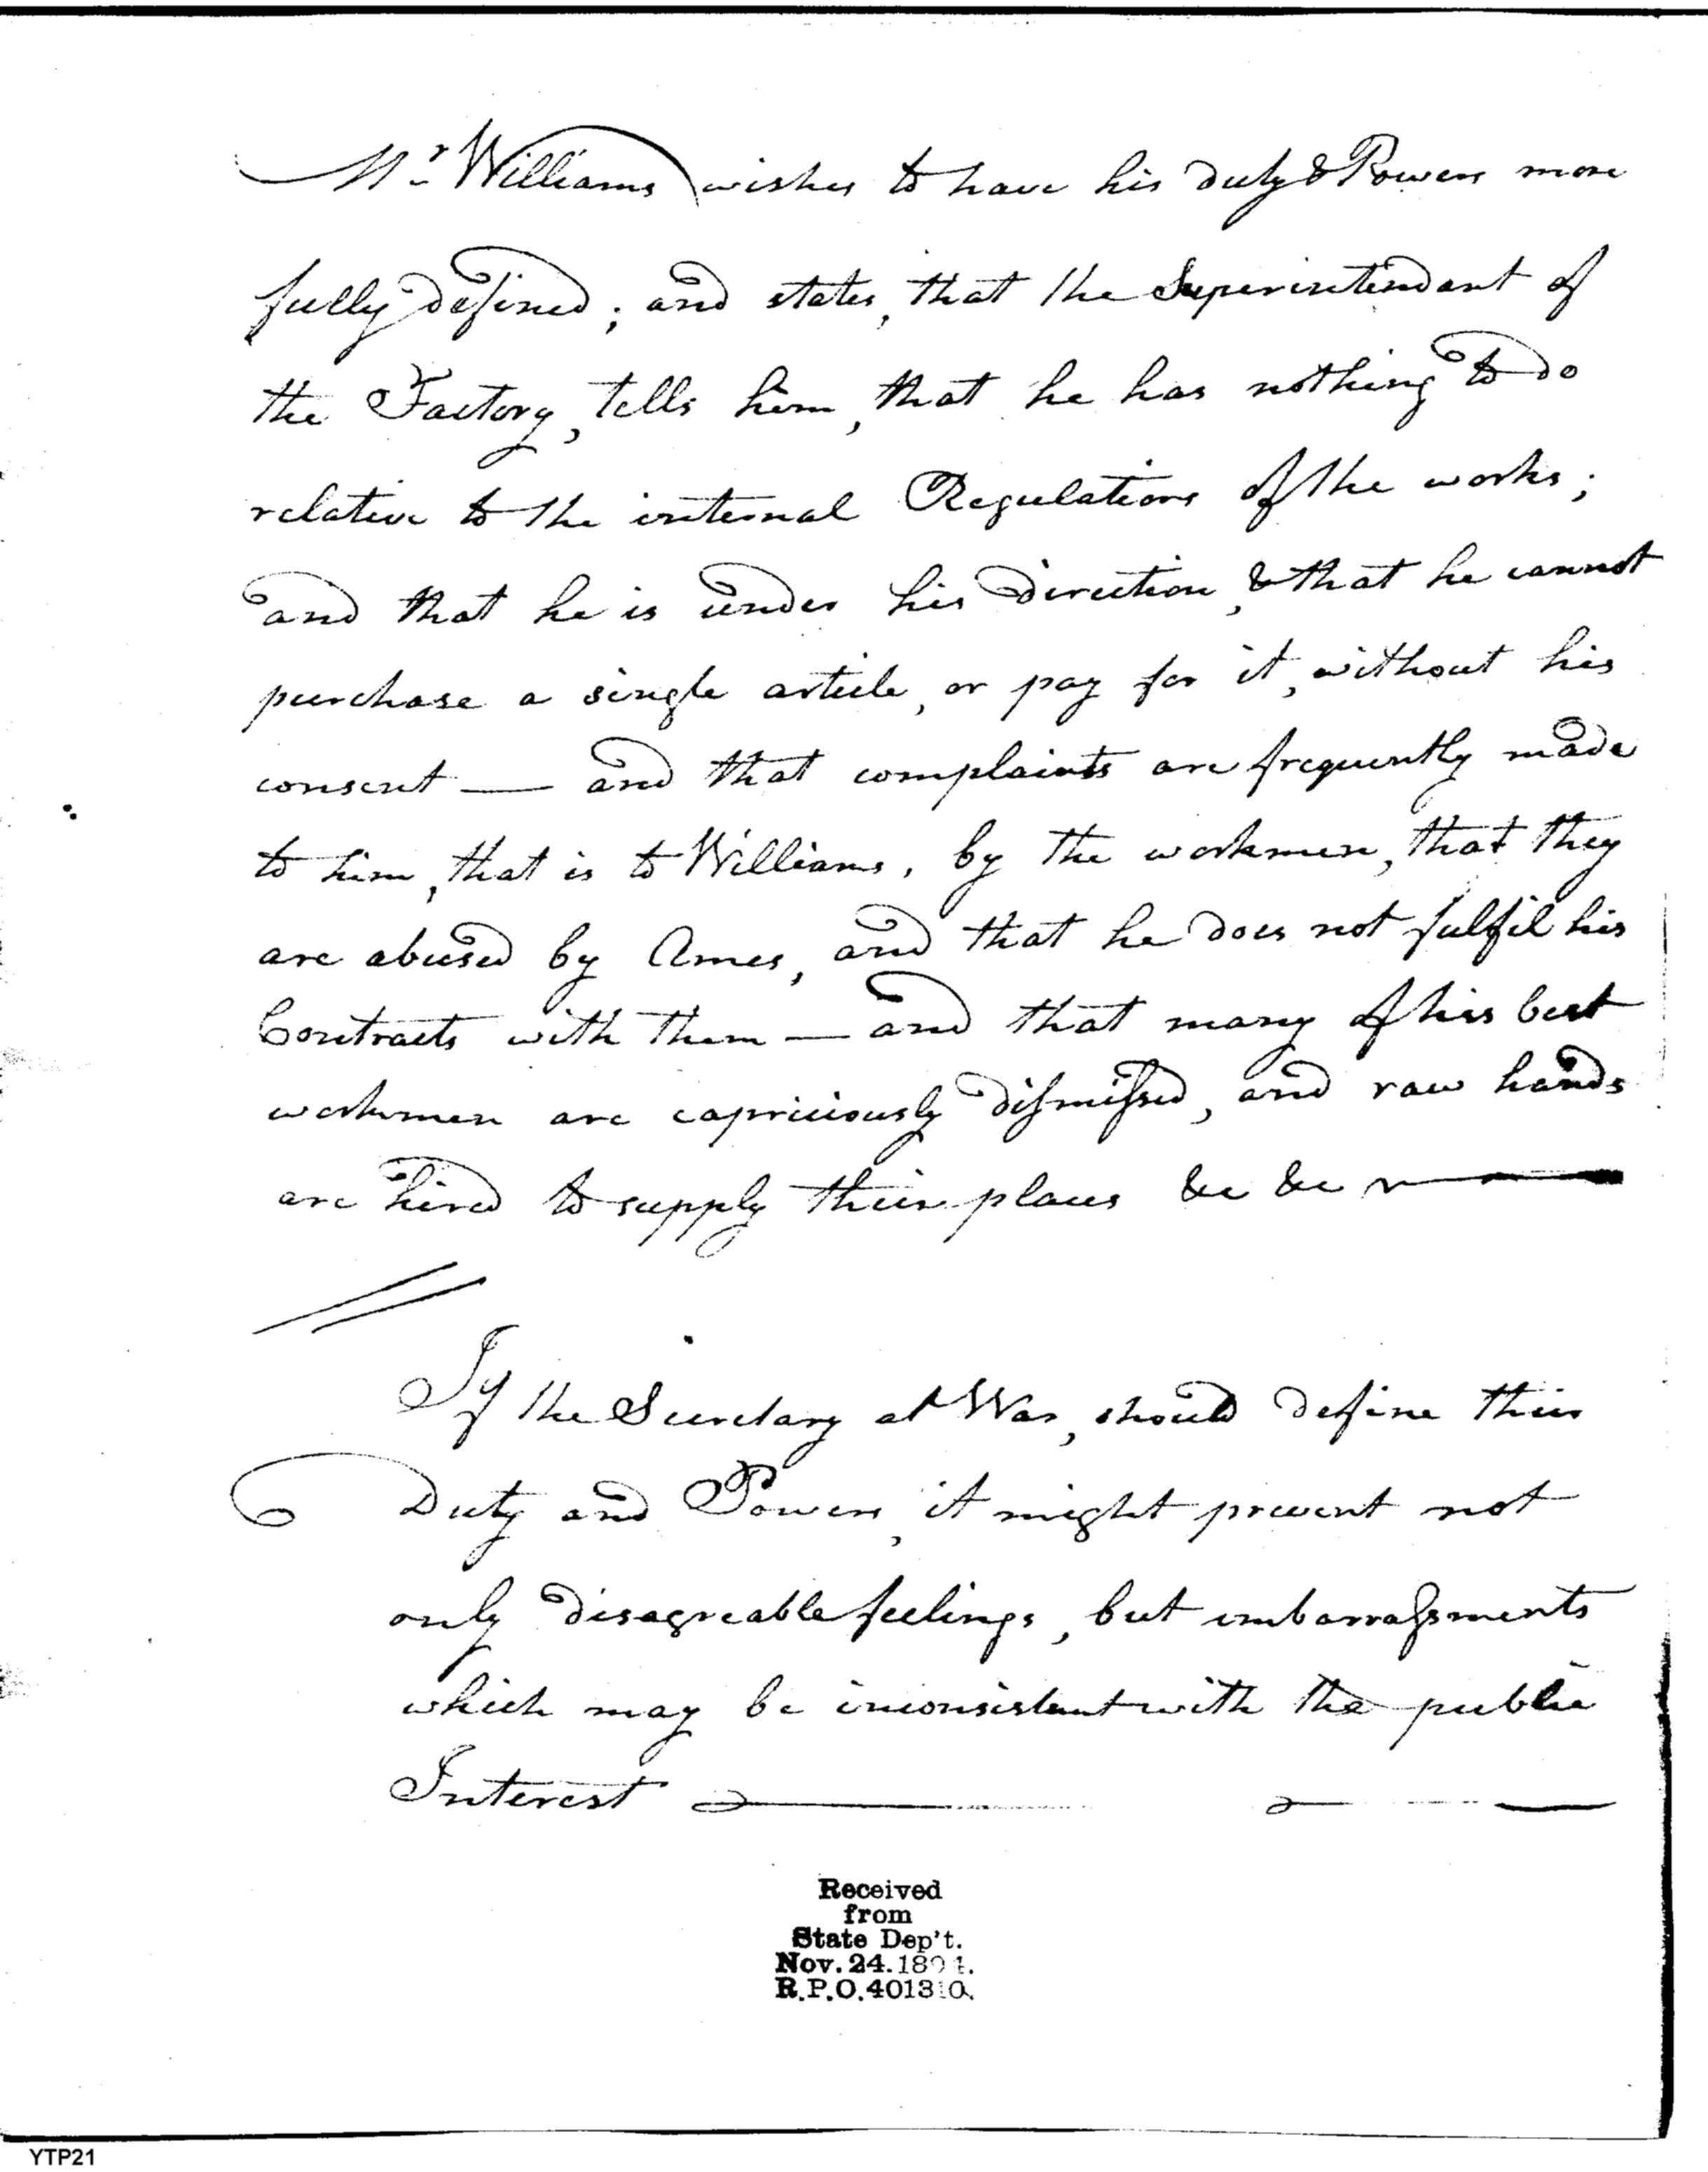 Mr Williams wishes to have his duty & Powers more
fully defined; and states, that the Superintendant of
the Factory, tells him, that he has nothing to do
relative to the internal Regulations of the works;
and that he is under his direction, & that he cannot
purchase a single article, or pay for it, without his
consent — and that complaints are frequently made
to him, that is to Williams, by the workmen, that they
are abused by Ames, and that he does not fulfil his
Contracts with them — and that many of his best
workmen are capriciously dismissed, and raw hands
are hired to supply their places &c &c
If the Secretary at War, should define their
Duty and Powers, it might prevent not
only disagreable feelings, but embarrassments
which may be inconsistent with the public
Interest
Received
from
State Dep't.
Nov. 24. 1894.
R.P.O. 401310.
YTP21